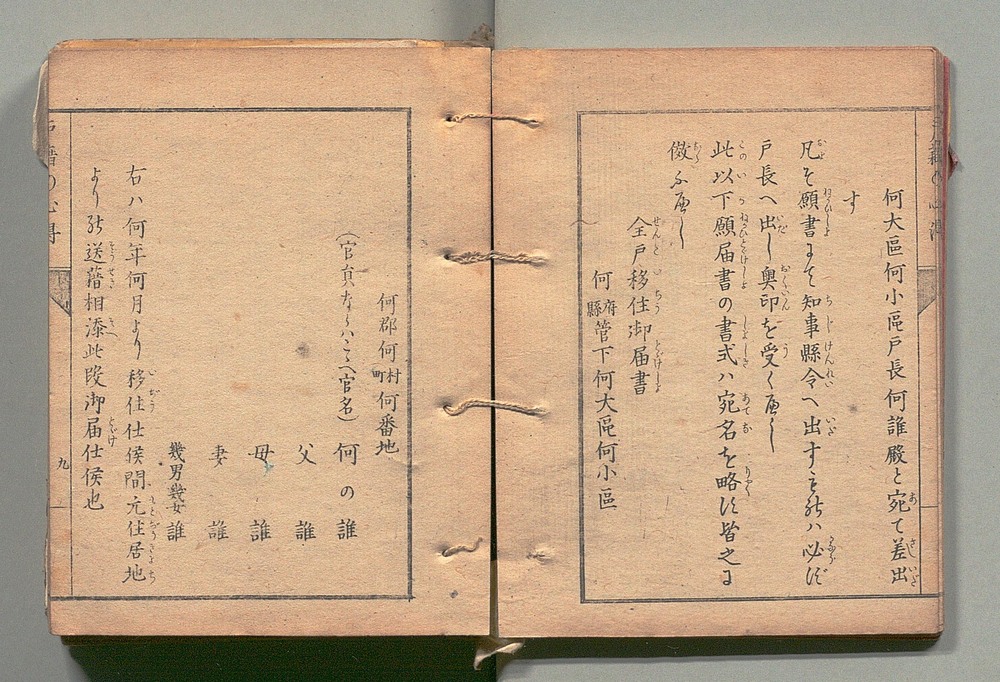 何大區何小區戸長何誰殿と宛て差出
す
凡そ願書にて知事縣令へ出すもの
戸長へ出し奥印を受くべし
此以下願届書の書式ハ宛名を略す皆之に
倣ふべし
全戸移住御届書
何府縣管下何大區何小區
何郡何村町何番地
(官員ならハこゝへ官名)何の誰
父 誰
母 誰
妻 誰
幾男幾女 誰
右ハ何年何月より移住仕候間元住居地
より 送籍相添此段御届仕候也
九